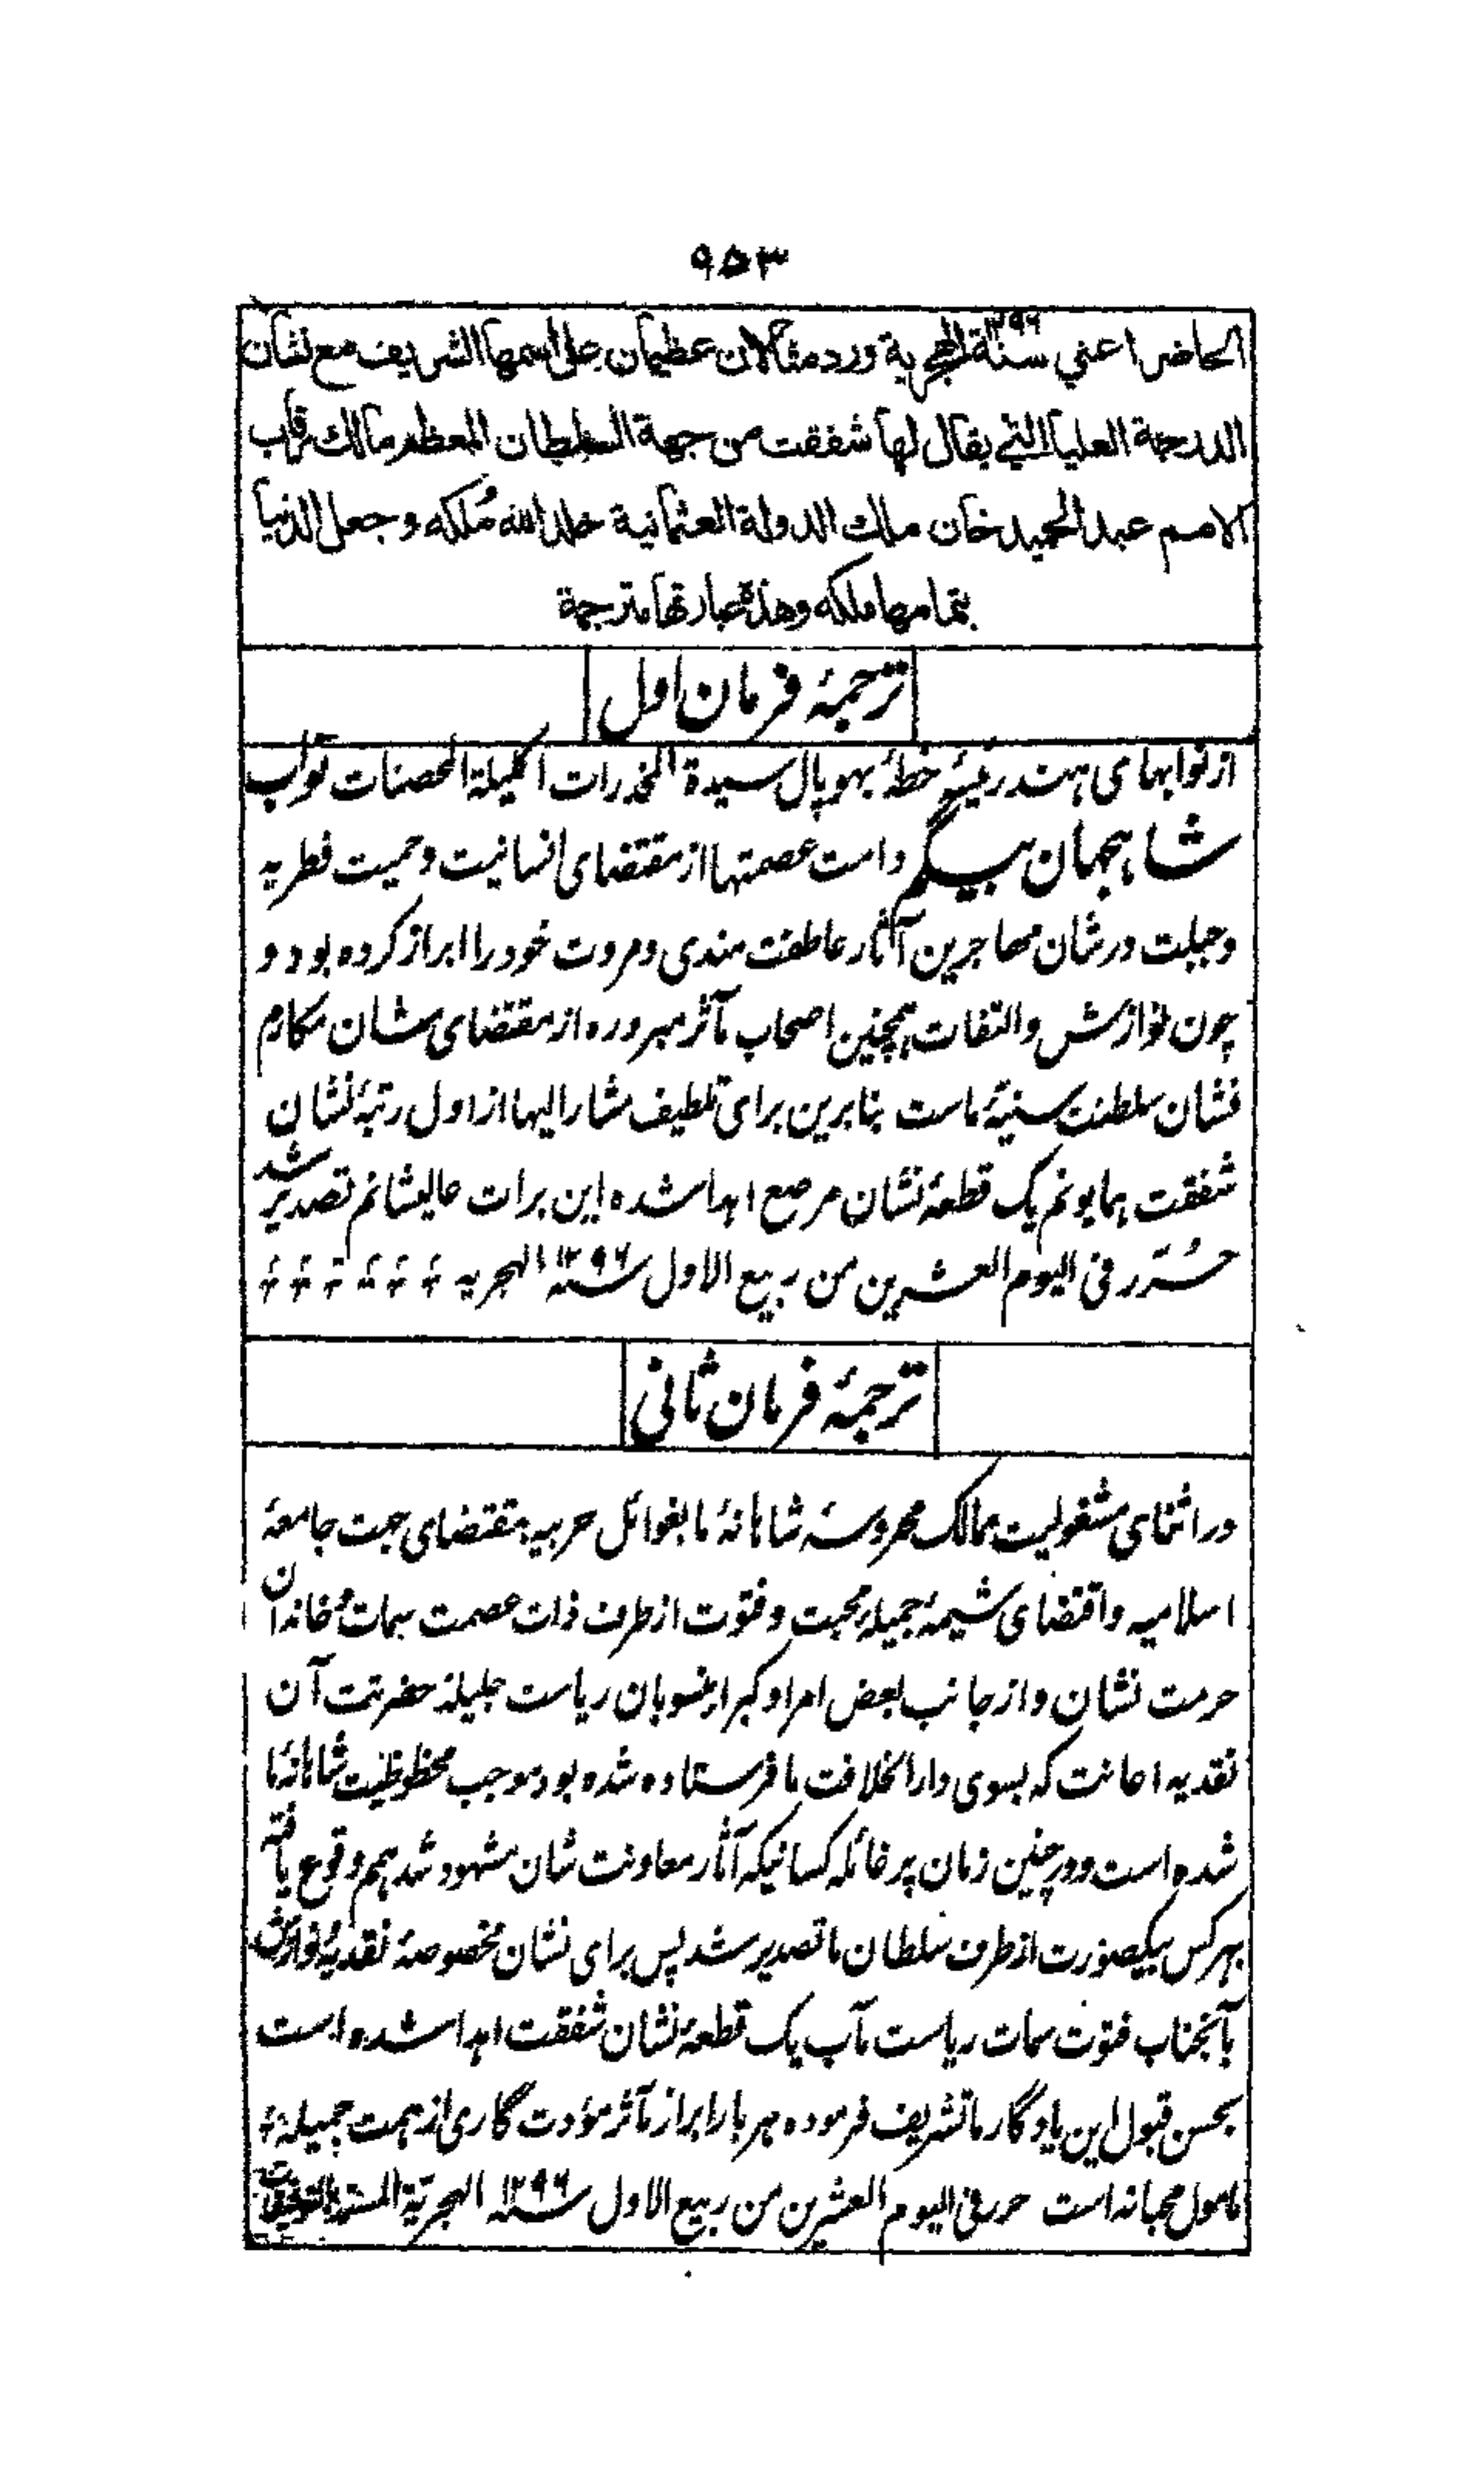 ۹۵۳
الحاضر اعني سنة ۱۲۹۶ الهجرية ورد مثالان عظيمان على اسمها الشريف مع نشان
الدرجة العليا التي يقال لها شفقت من جهة السلطان المعظم مالك رقاب
الامم عبد الحميد خان ملك الدولة العثمانية خلد الله مُلكه وجعل الدنيا
بتمامها ملكه وهذه عبارتها مترجمة
ترجمۀ فرمان اول
از نوابهای هند رئیسۀ خطۀ بهوپال سیدة المخدرات اکلیلة المحصنات نواب
شاهجهان بیگم دامت عصمتها از مقتضای انسانیت و حمیت فطریه
و جبلت در شان مهاجرین آثار عاطفت مندی و مروت خود را ابراز کرده بود و
چون نوازش و التفات همچنین اصحاب مآثر مبروره از مقتضای شان مکارم
نشان سلطنت سنیۀ ماست بنابرین برای تلطیف مشار الیها از اول رتبۀ نشان
شفقت همایونم یک قطعۀ نشان مرصع اهدا شده این برات عالیشانم تصدیر شد
حُرّر فی الیوم العشرین من ربیع الاول سنه ۱۲۹۶ الهجریه
ترجمۀ فرمان ثانی
در اثنای مشغولیت ممالک محروسۀ شاهانۀ ما بغوائل حربیه بمقتضای جهت جامعۀ
اسلامیه و اقتضای شیمۀ جمیلۀ محبت و فتوت از طرف ذات عصمت سمات خاندان
حرمت نشان و از جانب بعض امرا و کبرا و منسوبان ریاست جلیلۀ حضرتت آن
نقدیه اعانت که بسوی دار الخلافت ما فرستاده شده بود موجب محظوظیت شاهانۀ ما
شده است و در چنین زمان پر غائله کسانیکه آثار معاونت شان مشهود شد هم وقوع یافته
بهر کس بیکصورت از طرف سلطان ما تصدیر شد پس برای نشان مخصوصۀ نقدیۀ نوازش
بآنجناب فتوت سمات ریاست مآب یک قطعۀ نشان شفقت اهدا شده است
بحسن قبول این یادگار ما تشریف فرموده هر بار ابراز مآثر مؤدت کاری از همت جمیله
مامول محبانه است حرر فی الیوم العشرین من ربیع الاول سنه ۱۲۹۶ الهجریة